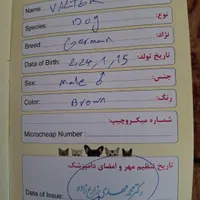 Name: VALTER
Species: Dog نوع:
Breed: German نژاد:
Date of Birth: 2024, 1, 15 تاریخ تولد:
Sex: male ♂ جنس:
Color: Brown رنگ:
Microcheap Number: شماره میکروچیپ:
تاریخ تنظیم مهر و امضای دامپزشک
Date of Issue: